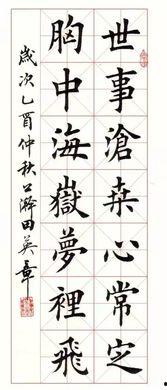 世事滄桑心常定
胸中海嶽夢裡飛
歲次乙酉仲秋田英章